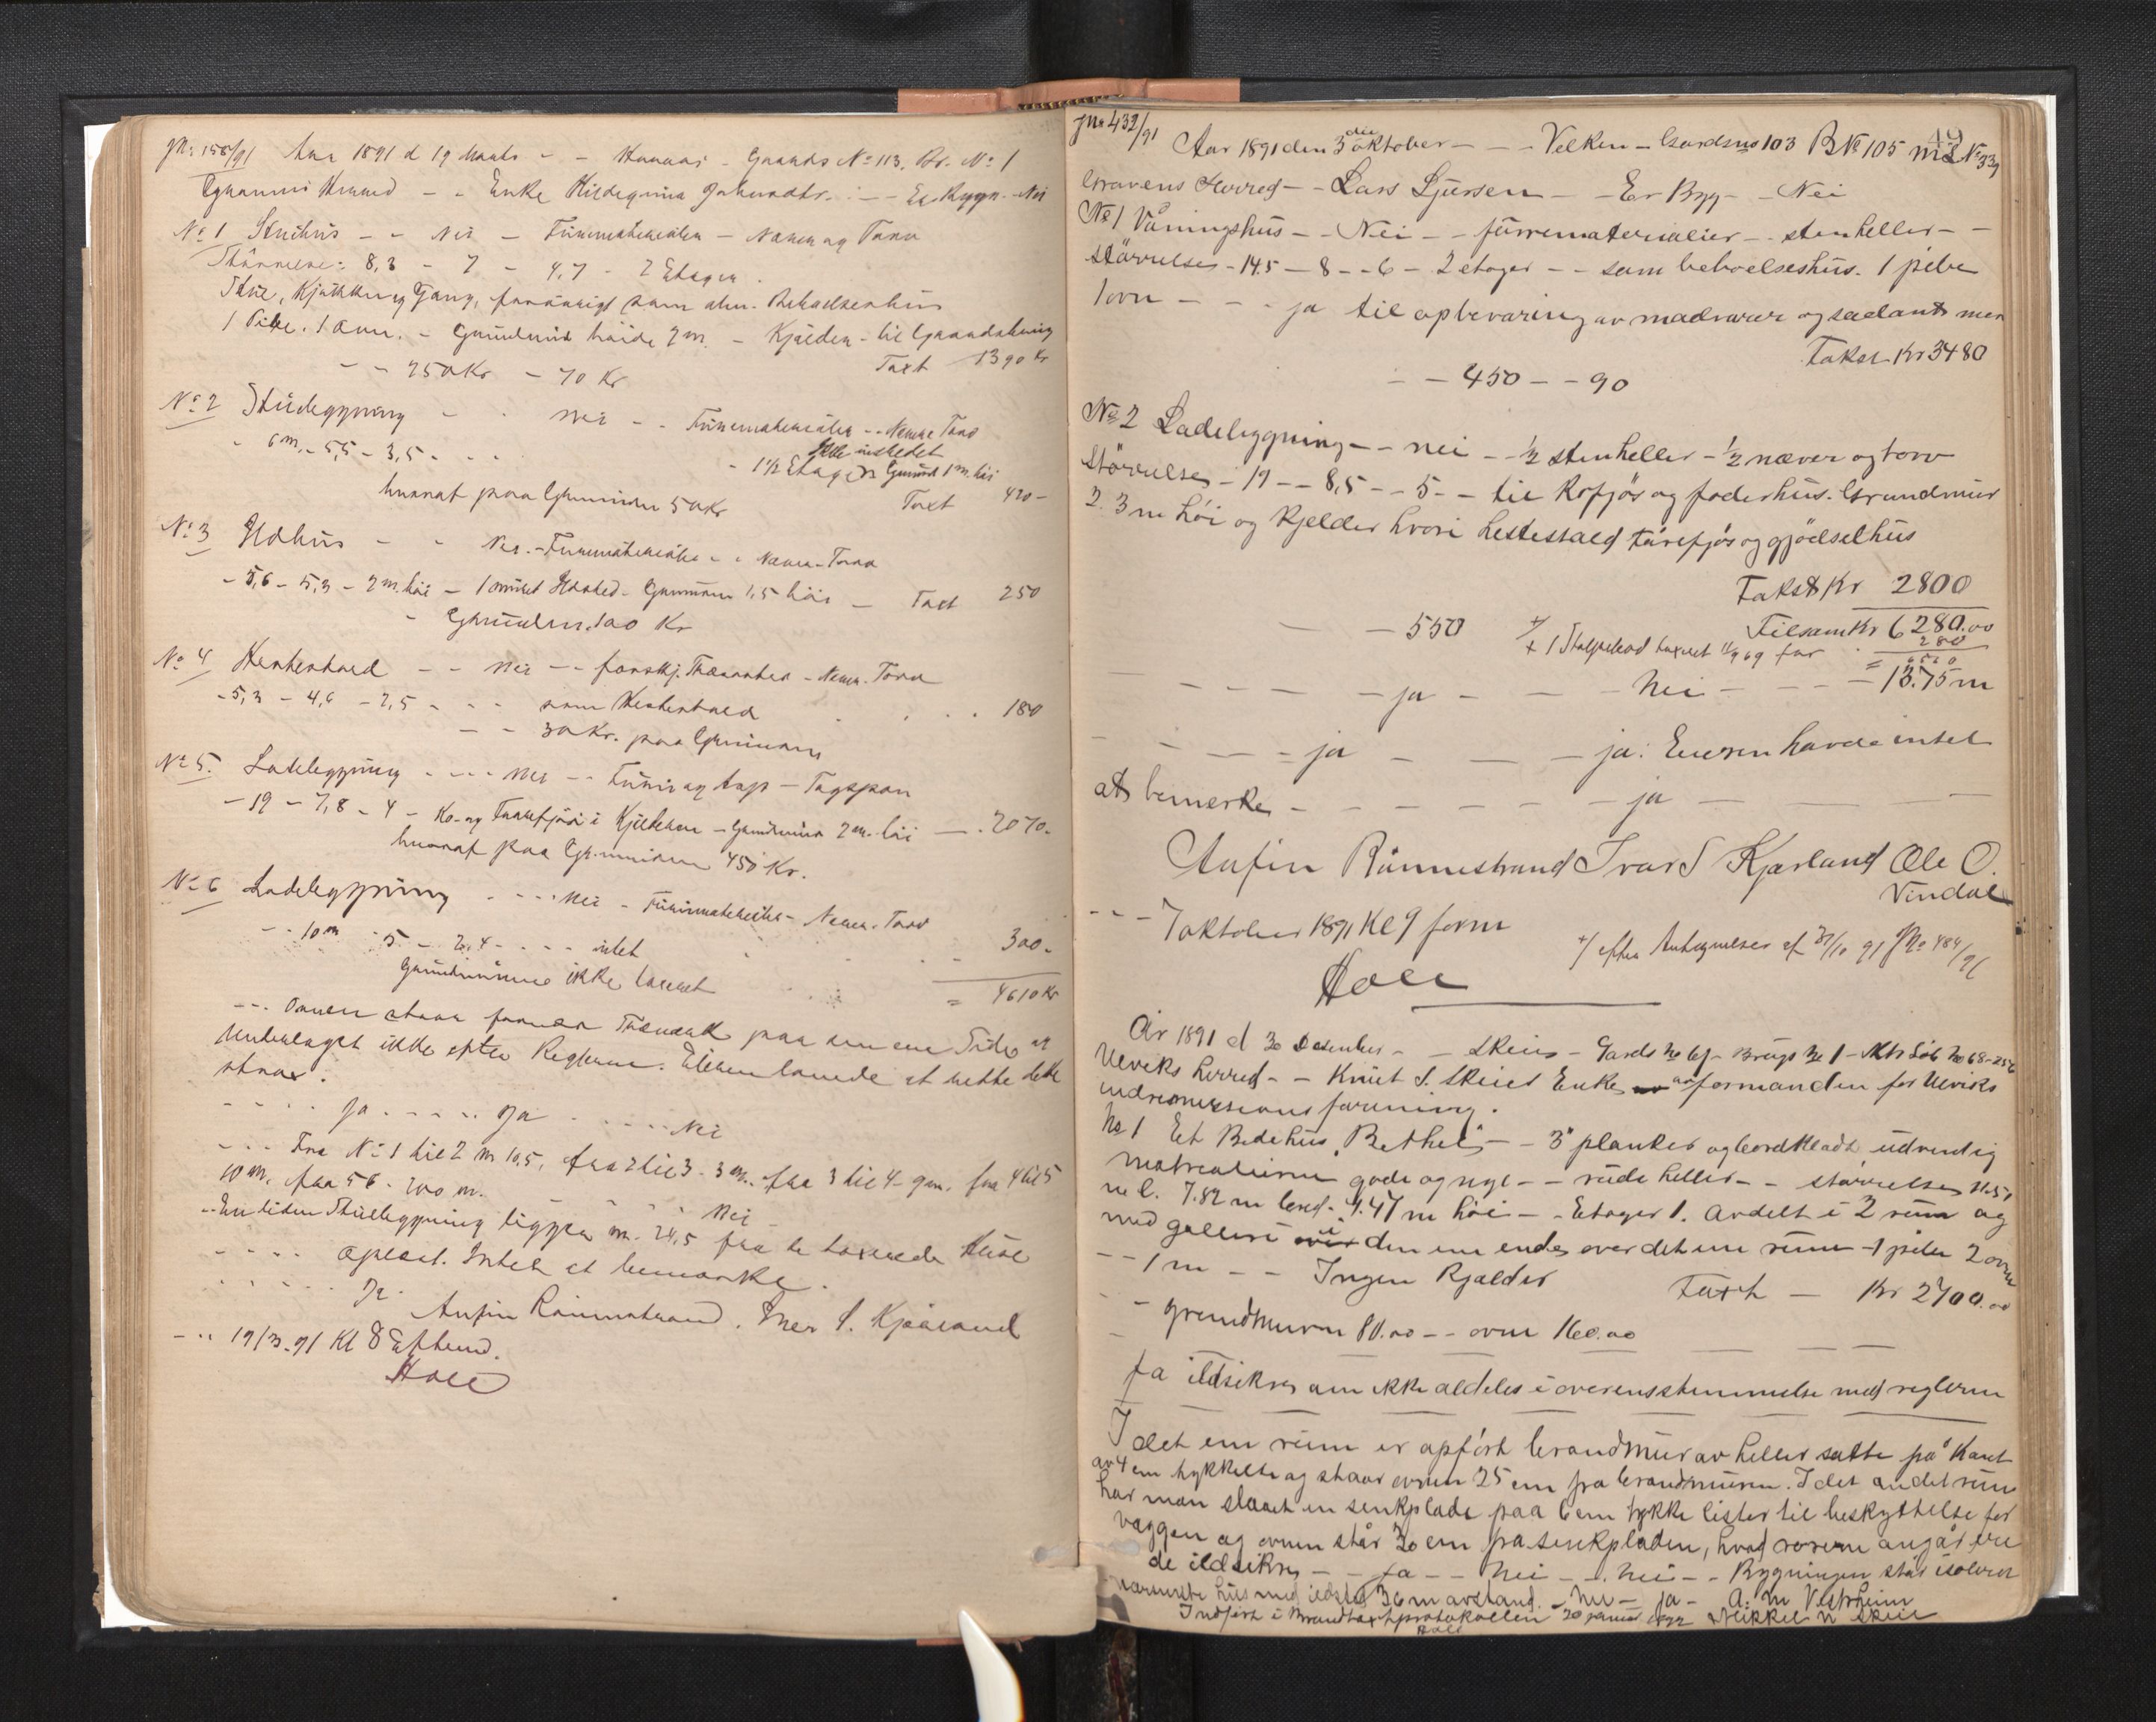 JN: 158/91 Aar 1891 d 19 Marts - - - Gaards No 113. Br. No 1
Enke - - Er Bygn. Nei
No 1 Stuehus - - Nei - Furumaterialer - Næver og Torv
Størrelse: 8,3 - 7 - 4,7 - 2 Etager.
Stue, Kjøkken og Gang, forøvrigt som alm. Beboelseshus
1 Pibe. 1 Ovn. - Grundmur høide 2 m. - Kjelder - til Gaardsbrug
Taxt 1390 Kr
- - 250 Kr - 70 Kr
No 2 Stuebygning - - Nei - - Furumaterialer - - Næver Torv
- 6 m. - 5,5 - 3,5 - - - Ikke indredet
- 1 1/2 Etage Grundm 1 m. høi
hvoraf paa Grunmuren 50 Kr Taxt 420 -
No 3 Ildhus - - Nei. - Furumaterialer - - Næver - Torv
- 5,6 - 5,3 - 2 m. høi - 1 muret Ildsted - Grunmuren 1,5 høi - Taxt 250
- Grunmuren 100 Kr
No 4 Hestestald - - Nei - - forskj. Træsorter - Næver. Torv
- 5,3 - 4,6 - 2,5 - - - som Hestestald . . . . 180
- - 30 Kr. paa Grunmuren
No 5. Ladebygning - - - Nei - - Furu og Asp - Tagspon
- 19 - 7,8 - 4 - Ko- og Faarefjøs i Kjelderen - Grundmuren 2 m. høi - . 2070 -
hvoraf paa Gr.muren 450 Kr.
No 6 Ladebygning - - - Nei - Furumaterialer - Næver. Torv
- - 10 m - 5 - 2,4 - - - intet 300 -
Grundmuren ikke taxeret = 4610 Kr
- - - Ovnen staar for nær Trævæg paa den ene Side og
Underlaget ikke efter Reglerne. Eieren lovede at rette dette
strax.
- - - - Ja - - - - Ja - - - - Nei
- - - Fra No 1 til 2 m 10,5, fra 2 til 3 - 3 m. fra 3 til 4 - 9 m. fra 4 til 5
10 m. fra 5 6 - 200 m. - - - Nei -
- En liden Stuebygning ligger m. 24,5 fra de taxerede Huse
- - - - oplæst. Intet at bemærke.
- - - - - Ja.
Anfin Rønnestrand. Iver S. Kjærland
- - 19/3. 91 Kl 8 Efterm.
Hole
JNo 432/91 Aar 1891 den 3die oktober - - - Velken - Gardsno 103 B No 105 M L No 339
49
Gravens Herred - - Lars Sjursen - - Er Byg - - Nei
No 1 Våningshus - - Nei - - fürrematerialier - - stenheller - -
størrelse - 14.5 - 8 - - 6 - 2 etager - - som beboelseshus. 1 pibe
1 ovn - - - ja til opbevaring av madvarer og saadant mer
Takst Kr 3480
- - 450 - - 90
No 2 Ladebygning - - nei - - 1/2 stenheller - 1/2 næver og torv
størrelse - 19 - - 8,5 - - 5 - - til kofjøs og foderhus. Grundmur
2.3 m høi og kjelder hvori hestestald faurefjøs og gjødselhus
Takst Kr 2800
- - 550 Tilsam Kr 6280.00
+ 1 taxeret for 280
= 6560
- - - - - ja - - - Nei - - - - 13.75 m
- - - - - ja - - - ja: Eieren havde intet
at bemerke - - - - - - - ja - - -
Anfin Rønnestrand Ivar S Kjærland Ole O.
Vindal
- - - 7 oktober 1891 Kl 9 form
+/ efter af 31/10 91 JNo 484/91
Hole
År 1891 d 30 Desember - - Skeie - Gards No 67 - Brugs No 1 - Mtr Løb No 68 - 256
Ulviks herred - - Knut S. Skeies Enke av formanden for Ulviks
indremissions forening.
No 1 Et Bedehus "Bethel" - - 3" planker og bordklædt udvendig
Matrealierne gode og nye - - rude heller - - størrelse 11.51
m l. 7.82 m bred - 4.47 m høi - - Etager 1. Avdelt i 2 rum og
med galleri i den ene ende over det ene rum - 1 pibe 2 ovne
- - 1 m - - Ingen Kjælder Taxt - Kr 2700.00
- - grundmuren 80.00 - - ovne 160.00
- - - - -
Ja ildsikre om ikke aldeles i overensstemmelse med reglerne
I det ene rum er opført brandmur av heller satte på kant
av 4 cm tykkelse og staar ovnen 25 cm fra brandmuren. I det andet rum
har man slaaet en senkplade paa 6 cm tykke lister til beskyttelse for
væggen og ovnen står 30 cm fra senkpladen, hvad rørerne angår ere
de ildsikre - - ja - - Nei - - Nei - - Bygningen står isoleret
nærmeste hus med ildsted 36 m avstand. - Nei - ja - A. M Vestrheim
Indført i Brandtaxtprotokollen 20 januar 1892 Mikkel N Skeie
Hole